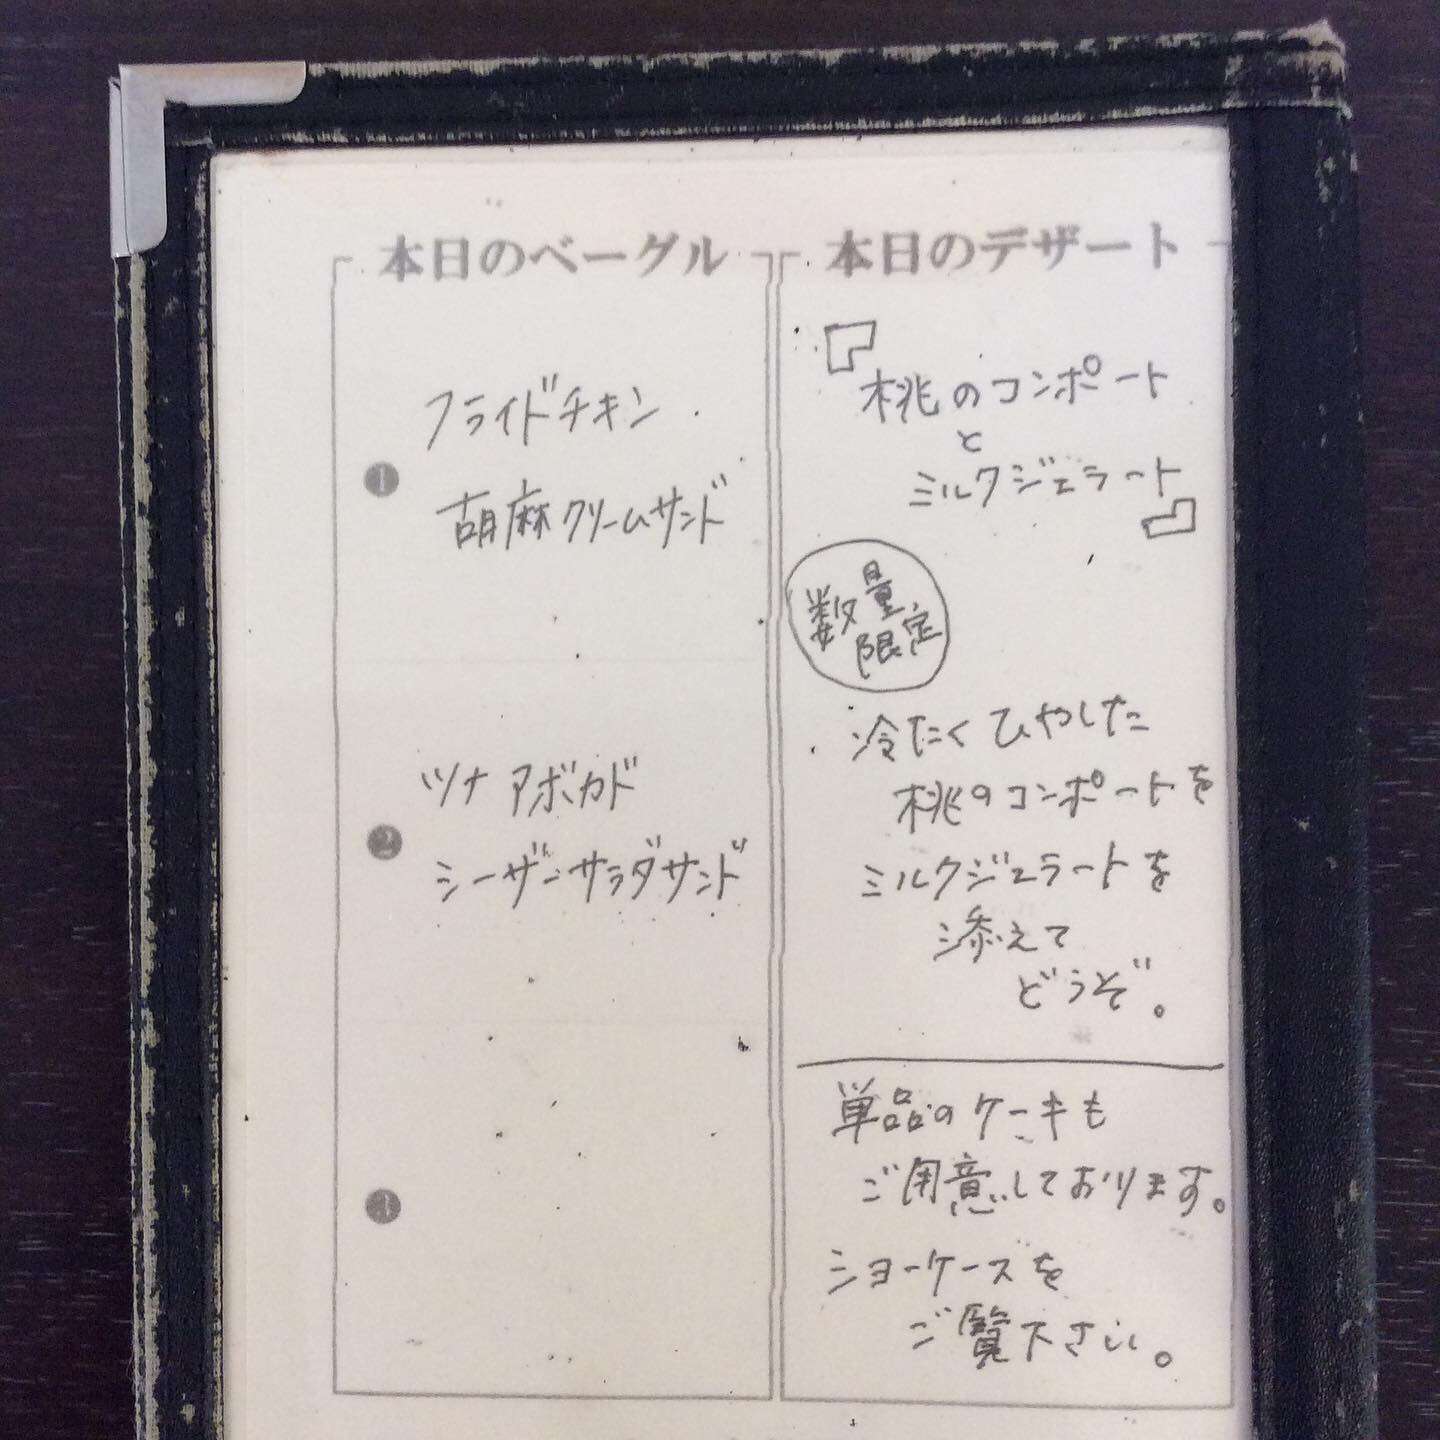 本日のベーグル
❶
フライドチキン
胡麻クリームサンド
❷
ツナアボカド
シーザーサラダサンド
❸
本日のデザート
『桃のコンポート
と
ミルクジェラート』
数量
限定
冷たくひやした
桃のコンポートを
ミルクジェラートを
添えて
どうぞ。
単品のケーキも
ご用意しております。
ショーケースを
ご覧下さい。